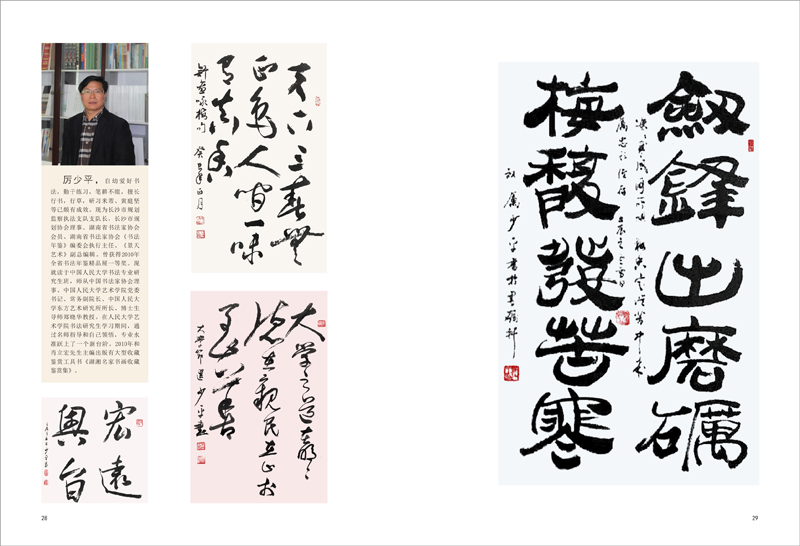 厉少平，自幼爱好书
法，勤于练习，笔耕不缀，擅长
行书，行草，研习米芾、黄庭坚
等已颇有成效。现为长沙市规划
监察执法支队支队长、长沙市规
划协会理事、湖南省书法家协会
会员、湖南省书法家协会《书法
年鉴》编委会执行主任、《景天
艺术》副总编辑。曾获得2010年
全省书法年鉴精品展一等奖。现
就读于中国人民大学书法专业研
究生班，师从中国书法家协会理
事、中国人民大学艺术学院党委
书记、常务副院长、中国人民大
学东方艺术研究所所长、博士生
导师郑晓华教授。在人民大学艺
术学院书法研究生学习期间，通
过名师指导和自己领悟，专业水
准跃上了一个新台阶。2010年和
肖立定先生主编出版有大型收藏
鉴赏工具书《湖湘名家书画收藏
鉴赏集》。
宏遠
天下三春無
正色人间一味
有真香
大学之道在明明
德在親民在止於
至善
大学节选少平书
劔鋒出磨礪
梅馥發苦寒
28
29